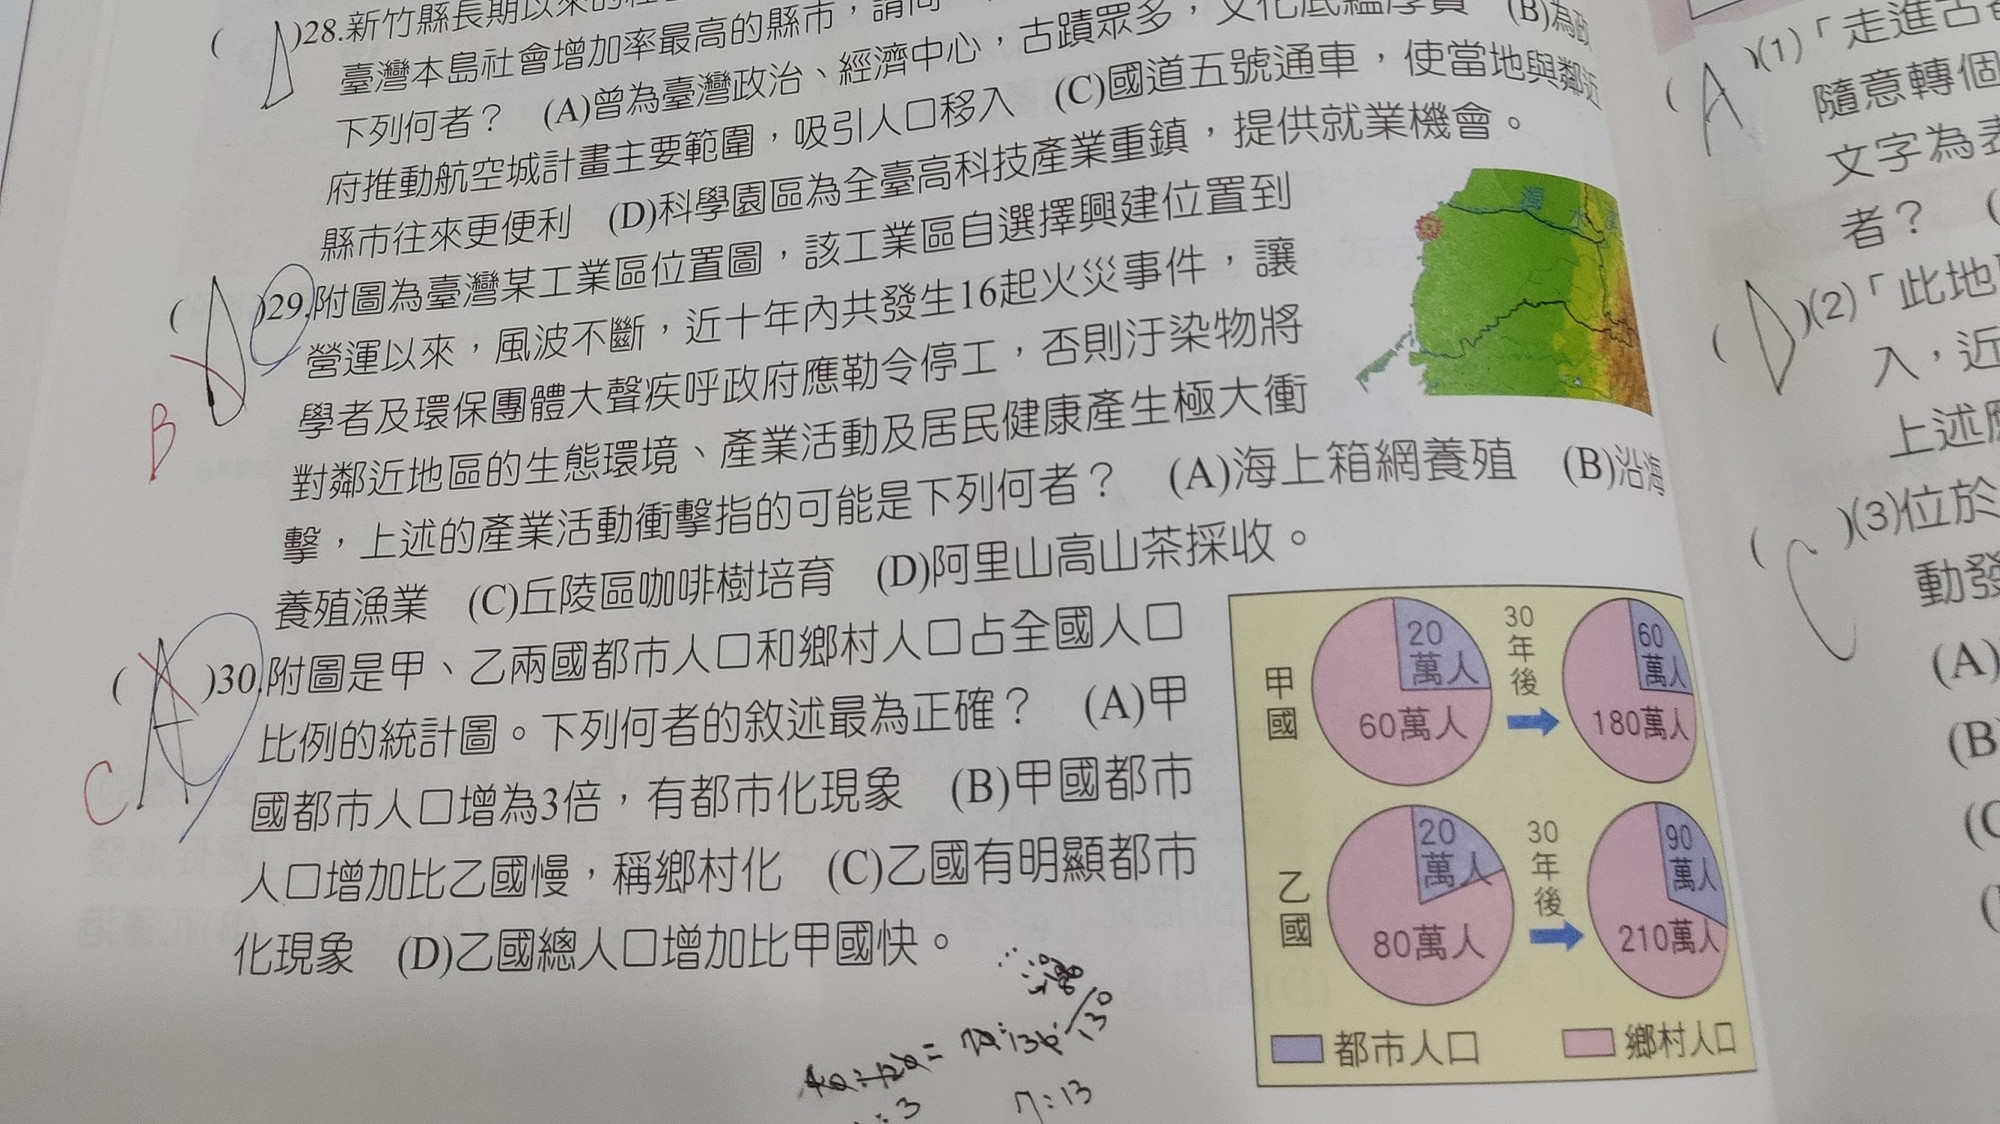 (D)28.新竹縣長期以來的社
臺灣本島社會增加率最高的縣市,請問
下列何者? (A)曾為臺灣政治、經濟中心,古蹟眾多,文化底蘊厚實 (B)為政
府推動航空城計畫主要範圍,吸引人口移入 (C)國道五號通車,使當地與鄰近
縣市往來更便利 (D)科學園區為全臺高科技產業重鎮,提供就業機會。
(D)29.附圖為臺灣某工業區位置圖,該工業區自選擇興建位置到
B
營運以來,風波不斷,近十年內共發生16起火災事件,讓
學者及環保團體大聲疾呼政府應勒令停工,否則汙染物將
對鄰近地區的生態環境、產業活動及居民健康產生極大衝
擊,上述的產業活動衝擊指的可能是下列何者? (A)海上箱網養殖 (B)沿海
養殖漁業 (C)丘陵區咖啡樹培育 (D)阿里山高山茶採收。
濁水溪
(A)30.附圖是甲、乙兩國都市人口和鄉村人口占全國人口
C
比例的統計圖。下列何者的敘述最為正確? (A)甲
國都市人口增為3倍,有都市化現象 (B)甲國都市
人口增加比乙國慢,稱鄉村化 (C)乙國有明顯都市
化現象 (D)乙國總人口增加比甲國快。
甲國
20萬人
60萬人
30年後
60萬人
180萬人
乙國
20萬人
80萬人
30年後
90萬人
210萬人
都市人口
鄉村人口
7:13
(A)(1)「走進古
隨意轉個
文字為表
者? (
(D)(2)「此地
入,近
上述
(C)(3)位於
動發
(A)
(B)
(C
(